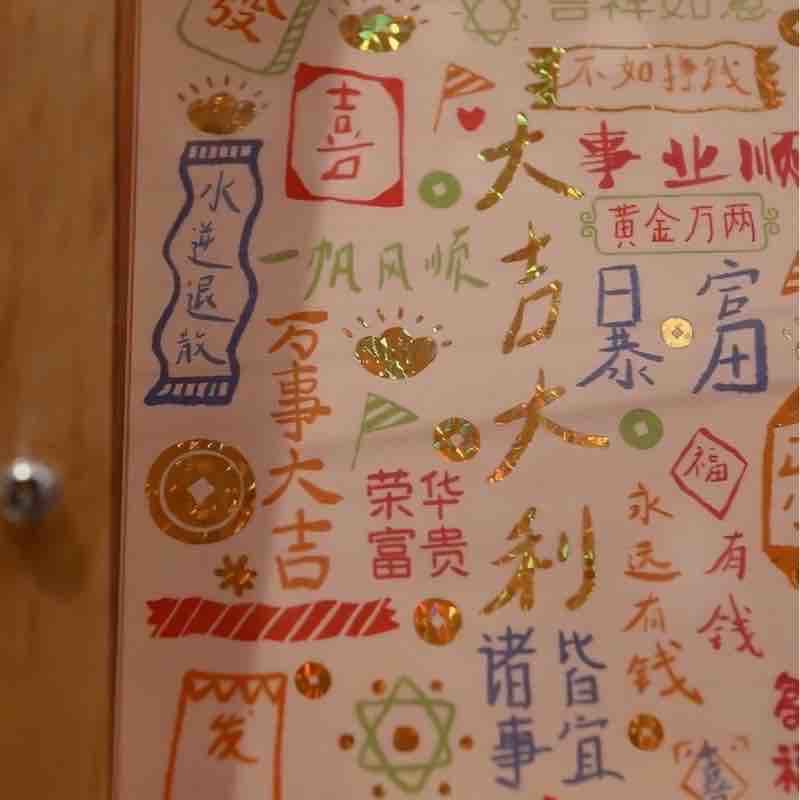 發
吉祥如意
不如挣钱
喜
事业顺
大吉大利
水逆退散
黄金万两
一帆风顺
日暴
富
万事大吉
福
荣华
富贵
永远有钱
有钱
诸事
皆宜
发
喜
福